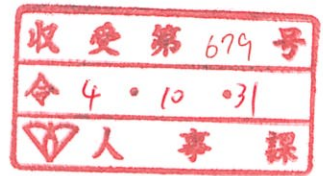 収受第679号
令4・10・31
人事課